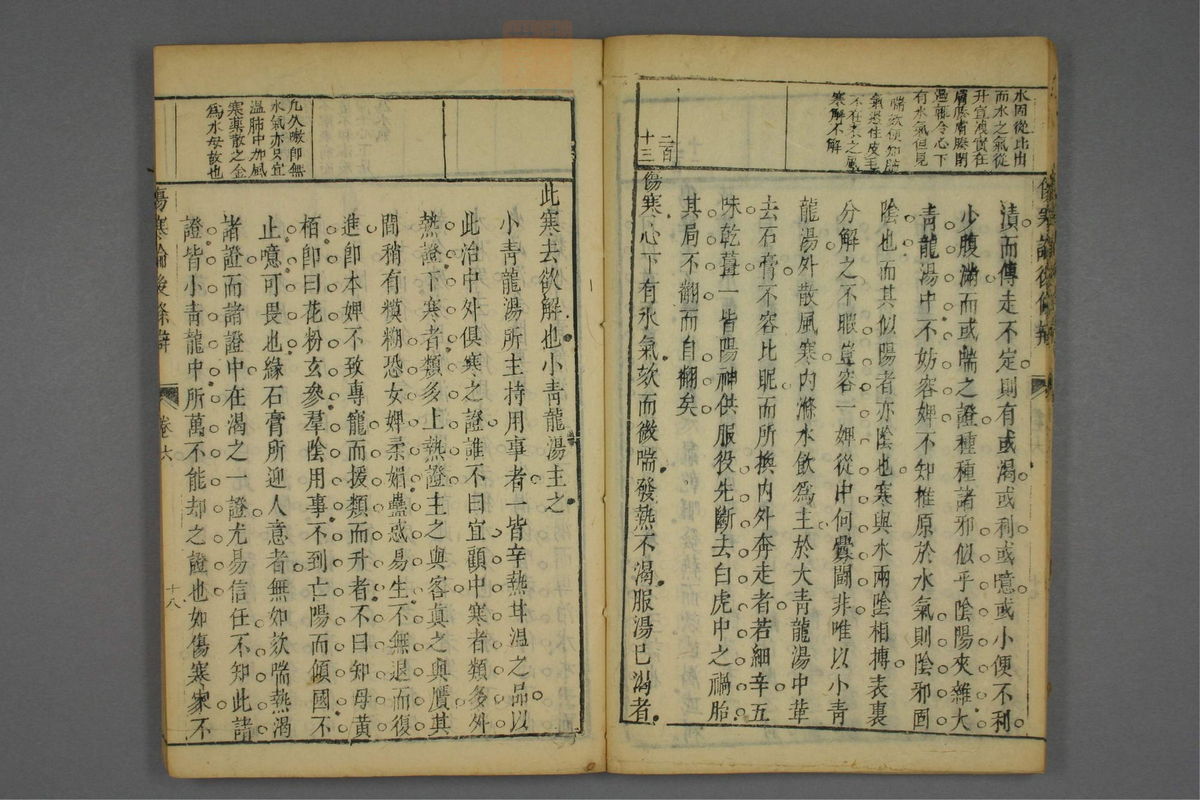 水固從此出
而水之氣從
升宣洩實在
膚腠膚腠閉
過輒令心下
有水氣但見
喘欬便知肺
氣恐住皮毛
不在表之風
寒解不解
二百
十三
傷寒論後條辨
漬而傳走不定則有或渴或利或噫或小便不利
少腹滿而或喘之證種種諸邪似乎陰陽夾雜大
青龍湯中不妨容婢不知椎原於水氣則陰邪固
陰也而其似陽者亦陰也寒與水兩陰相摶表裏
分解之不暇豈容一婢從中何釁鬭非唯以小青
龍湯外散風寒內滌水飲爲主於大青龍湯中葷
去石膏不容比昵而所換內外奔走者若細辛五
味乾薑一皆陽神供服役先斷去白虎中之禍胎
其局不翻而自翻矣
傷寒心下有水氣欬而微喘發熱不渴服湯已渴者
凡久嗽卽無
水氣亦只宜
溫肺中加風
寒藥散之金
爲水母故也
此寒去欲解也小青龍湯主之
小青龍湯所主持用事者一皆辛熱甘溫之品以
此治中外俱寒之證誰不曰宜顧中寒者類多外
熱證下寒者類多上熱證主之與客真之與贋其
間稍有模糊恐女婢柔媚蠱惑易生不無退而復
進卽本婢不致專寵而援類而升者不曰知母黃
栢卽曰花粉玄參羣陰用事不到亡陽而傾國不
止噫可畏也緣石膏所迎人意者無如欬喘熱渴
諸證而諸證中在渴之一證尤易信任不知此諸
證皆小青龍中所萬不能却之證也如傷寒家不
傷寒論後條辨
卷六
十八